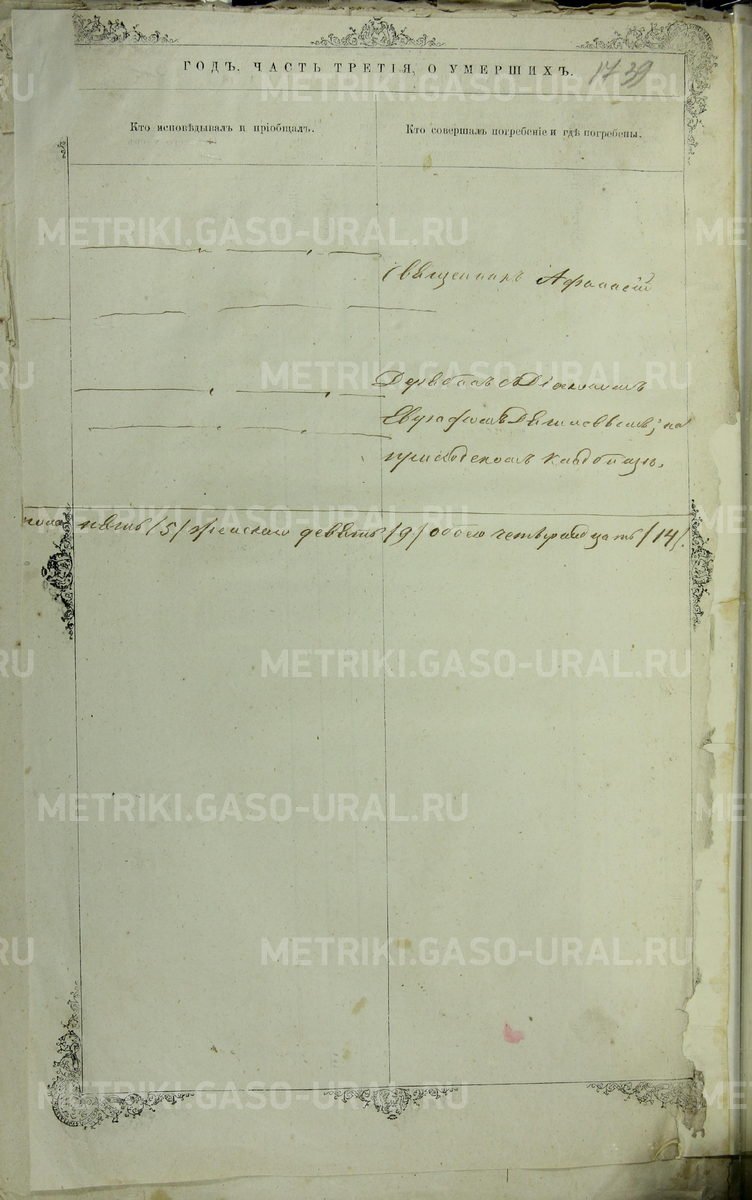 ГОДЪ. ЧАСТЬ ТРЕТІЯ, О УМЕРШИХЪ. 1739
Кто исповѣдывалъ и пріобщалъ.
Кто совершалъ погребеніе и гдѣ погребены.
Священникъ Афанасій
съ Діакономъ
на
приходскомъ кладбищѣ.
пола пять /5/ женскаго девять /9/ обоего четырнадцать /14/.
METRIKI.GASO-URAL.RU
METRIKI.GASO-URAL.RU
METRIKI.GASO-URAL.RU
METRIKI.GASO-URAL.RU
METRIKI.GASO-URAL.RU
METRIKI.GASO-URAL.RU
METRIKI.GASO-URAL.RU
METRIKI.GASO-URAL.RU